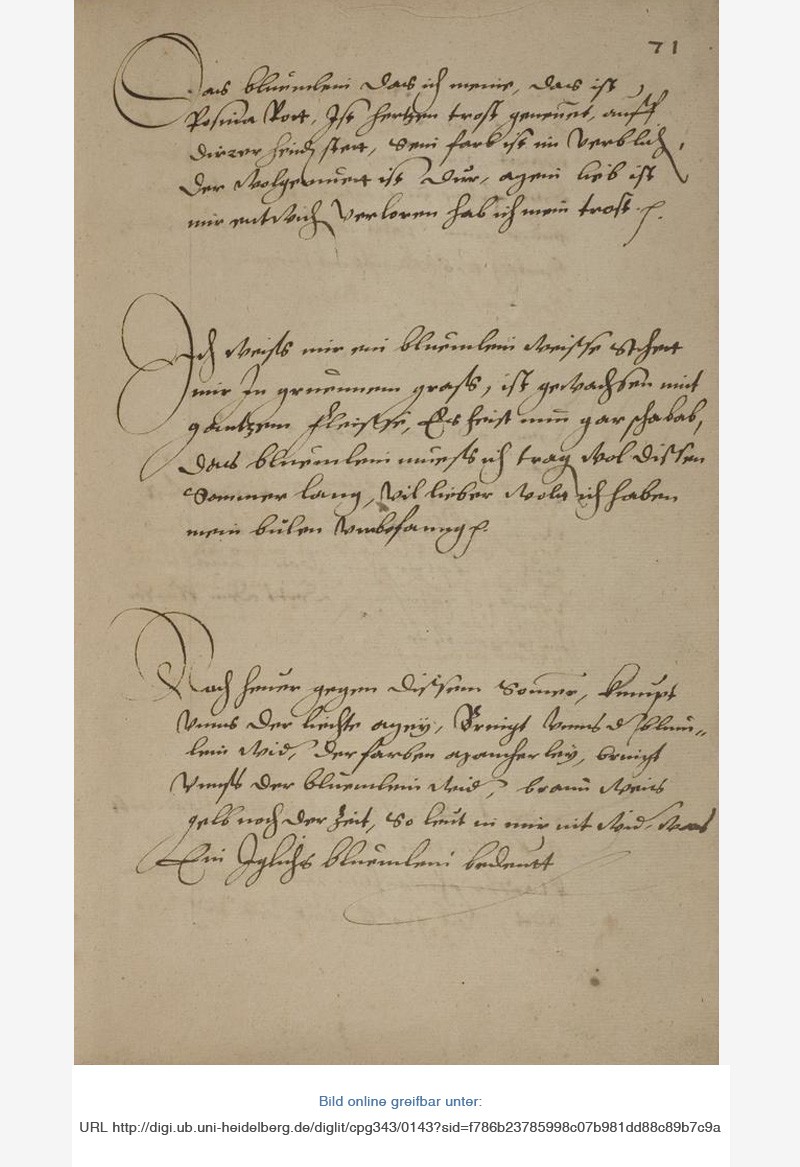 71
Das bluemlein das ich meine, das ist
Rosina Rott, Ist hertzen trost genennet, auff
dirrer heid stett, Sein farb ist im verblich,
der wolgemuett ist dur, mein lieb ist
mir entwich, verloren hab ich mein trost
Ich weiss mir ein bluemlein weisse Stehet
mir In gruennem grass, ist gewachsen mit
gantzem fleisse, Es heist nun gar schabab,
das bluemlein muess ich trag wol dissen
Sommer lang, vil lieber wolt ich haben
mein bulen umbefanng
Nach heuer gegen dissem Somer, kumpt
unns der liechte mey, Bringt unns d blum,,
lein wid, der farben mancherley, bringt
unnss der bluemlein wid, braun weis
gelb noch der Zeit, So leut in mir nit wid, was
Ein Iglichs bluemlein bedeutt
Bild online greifbar unter:
URL http://digi.ub.uni-heidelberg.de/diglit/cpg343/0143?sid=f786b23785998c07b981dd88c89b7c9a